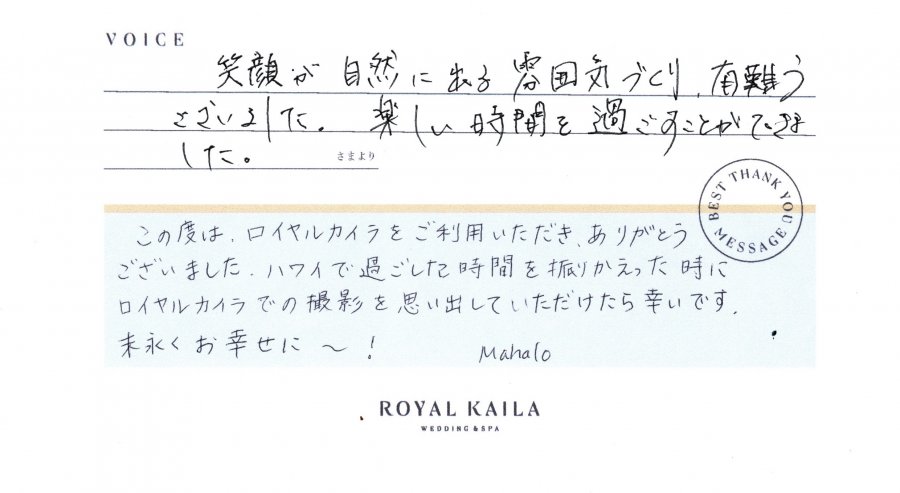 VOICE
笑顔が自然に出る雰囲気づくり、有難う
ございました。楽しい時間を過ごすことができま
した。
さまより
BEST THANK YOU MESSAGE
この度は、ロイヤルカイラをご利用いただき、ありがとう
ございました。ハワイで過ごした時間を振りかえった時に
ロイヤルカイラでの撮影を思い出していただけたら幸いです。
末永くお幸せに〜!
Mahalo
ROYAL KAILA
WEDDING & SPA